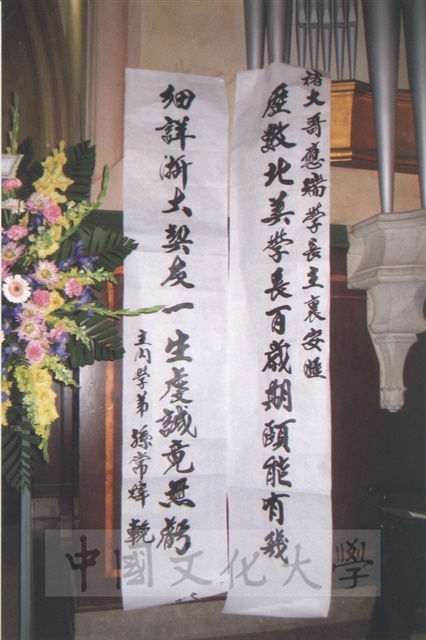 褚大哥應瑞學長主裏安匯
歷數北美學長百歲期頤能有幾
細詳浙大契友一生虔誠竟無虧
主內學弟 孫常煒 輓
中國文化大學